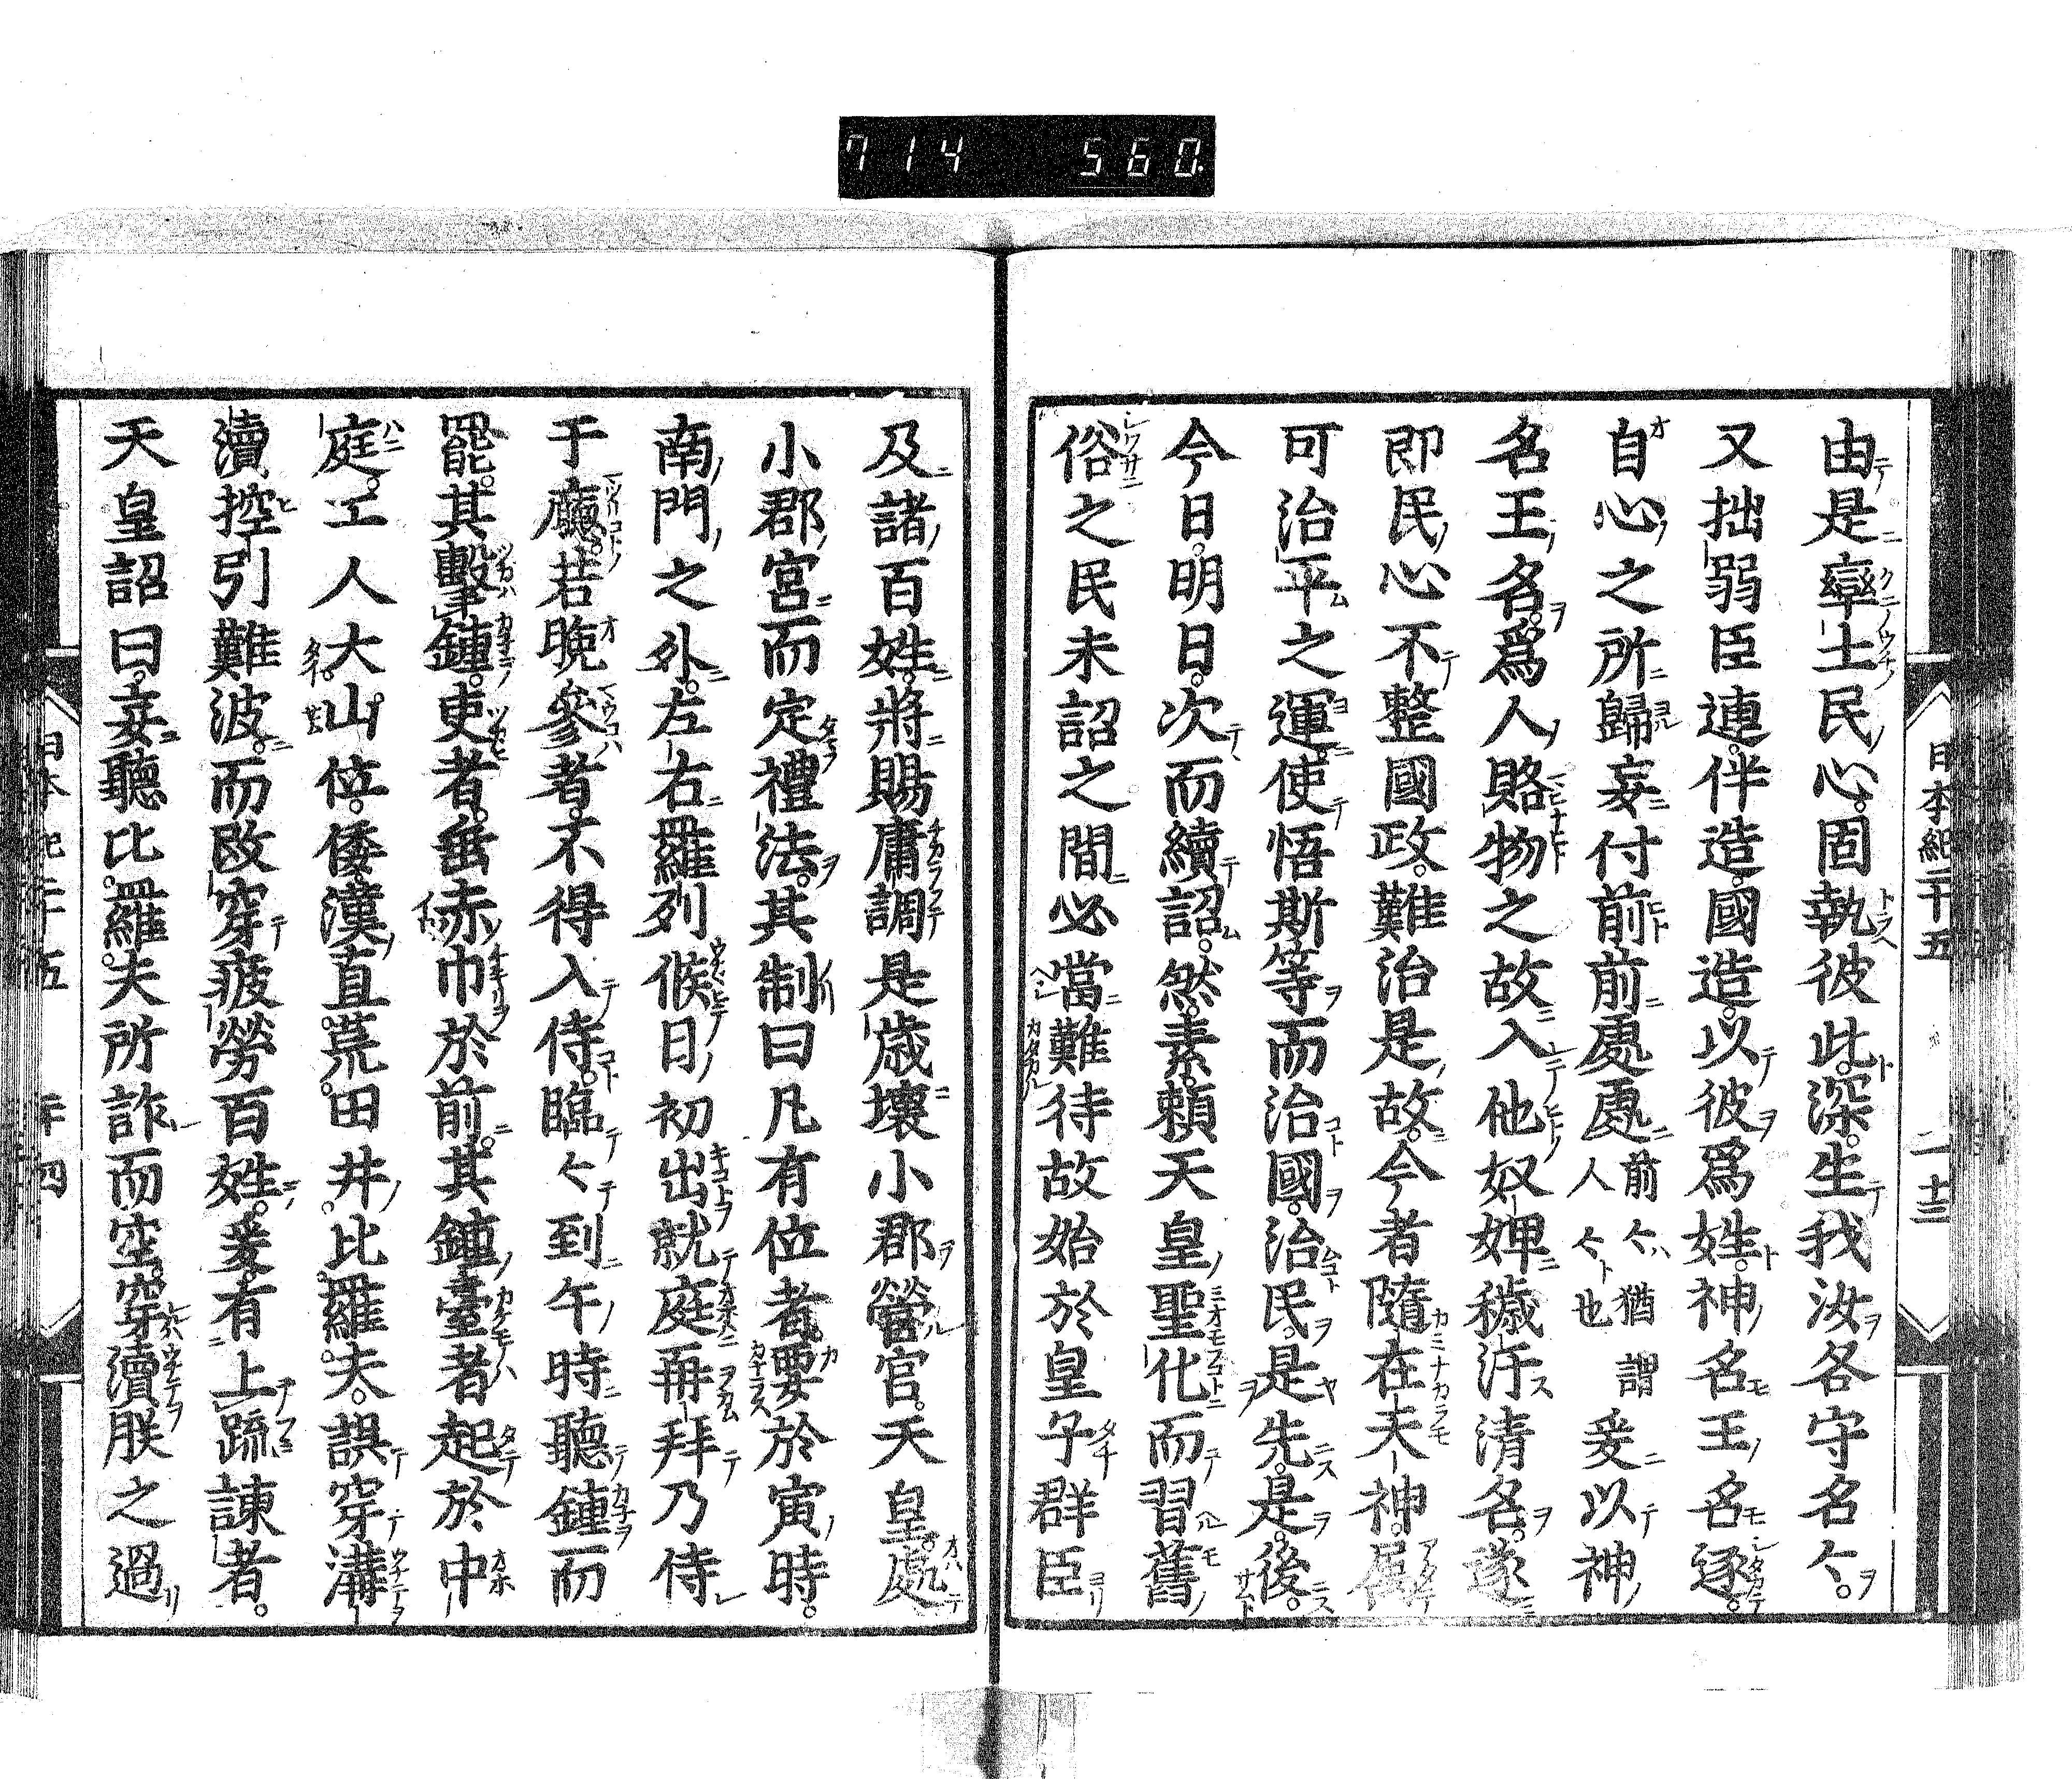 714 560
日本紀二十五 二十三
由是率土民心固執彼此深生我汝各守名々
又拙弱臣連伴造國造以彼爲姓神名王名逐
自心之所歸妄付前前處處前々猶謂人々也爰以神
名王名爲人賂物之故入他奴婢穢汚清名遂
即民心不整國政難治是故今者隨在天神屬
可治平之運使悟斯等而治國治民是先是後
今日明日次而續詔然素頼天皇聖化而習舊
俗之民未詔之間必當難待故始於皇子群臣
及諸百姓將賜庸調是歳壞小郡營官天皇處
小郡宮而定禮法其制曰凡有位者要於寅時
南門之外左右羅列候日初出就庭再拜乃侍
于廳若晩參者不得入侍臨々到午時聽鍾而
罷其擊鍾吏者垂赤巾於前其鍾臺者起於中
庭工人大山位倭漢直荒田井比羅夫誤穿溝
瀆控引難波而改穿疲勞百姓爰有上䟽諫者
天皇詔曰妄聽比羅夫所詐而空穿瀆朕之過